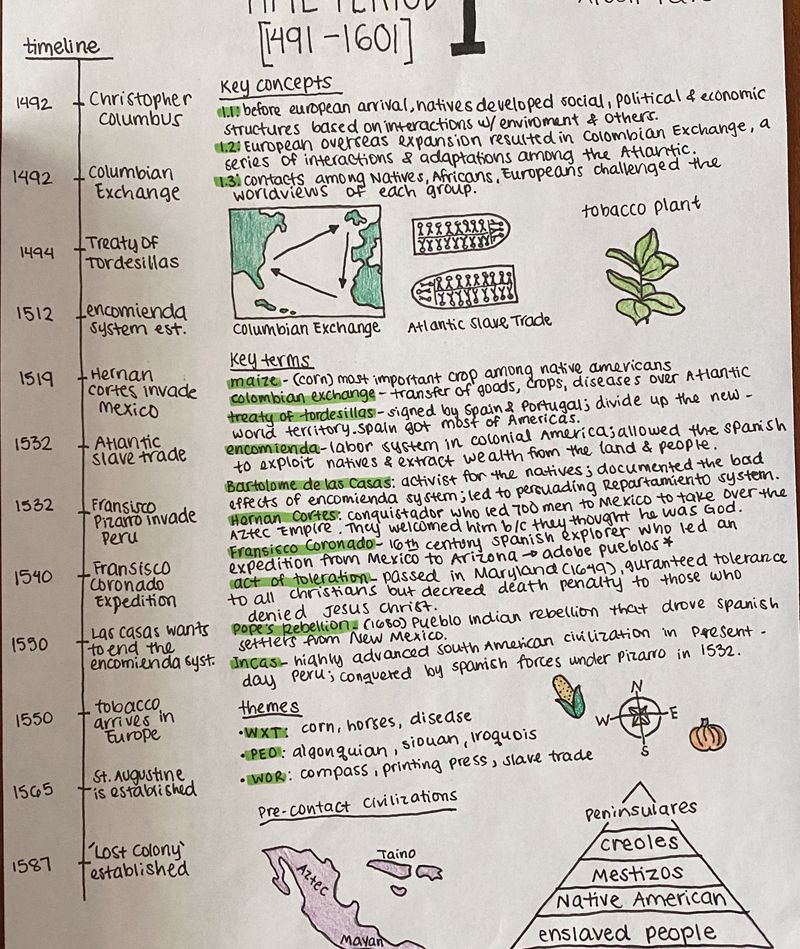 TIME PERIOD 1
[491-1601]
timeline
1492 Christopher
Columbus
1492 Columbian
Exchange
1494 Treaty of
Tordesillas
1512 encomienda
system est.
1519 Hernan
Cortes invade
Mexico
1532 Atlantic
slave trade
1532 Fransisco
Pizarro invade
Peru
1540 Fransisco
Coronado
Expedition
1550 Las Casas wants
to end the
encomienda syst.
1550 tobacco
arrives in
Europe
1565 St. Augustine
is established
1587 'Lost Colony'
established
Key concepts
1.1: before european arrival, natives developed social, political & economic
structures based on interactions w/ enviroment & others.
1.2: European overseas expansion resulted in Colombian Exchange, a
series of interactions & adaptations among the Atlantic.
1.3: contacts among Natives, Africans, Europeans challenged the
worldviews of each group.
Columbian Exchange
Atlantic Slave Trade
tobacco plant
Key terms
maize - (corn) most important crop among native americans
colombian exchange - transfer of goods, crops, diseases over Atlantic
treaty of tordesillas - signed by Spain & Portugal; divide up the new-
world territory. Spain got most of Americas.
encomienda - labor system in colonial America; allowed the spanish
to exploit natives & extract wealth from the land & people.
Bartolome de las Casas: activist for the natives; documented the bad
effects of encomienda system; led to persuading Repartamiento system.
Hernan Cortes: conquistador who led 700 men to Mexico to take over the
Aztec Empire. They welcomed him b/c they thought he was God.
Fransisco Coronado - 16th century spanish explorer who led an
expedition from Mexico to Arizona → adobe pueblos*
act of toleration - passed in Maryland (1649), guranteed tolerance
to all christians but decreed death penalty to those who
denied Jesus Christ.
Pope's Rebellion - (1680) Pueblo Indian rebellion that drove spanish
settlers from New Mexico.
Incas - highly advanced south American civilization in present-
day Peru; conquered by spanish forces under Pizarro in 1532.
themes
• WXT: corn, horses, disease
• PEO: algonquian, siouan, Iroquois
• WOR: compass, printing press, slave trade
N
W E
S
Pre-contact Civilizations
Aztec
Taino
Mayan
peninsulares
creoles
Mestizos
Native American
enslaved people